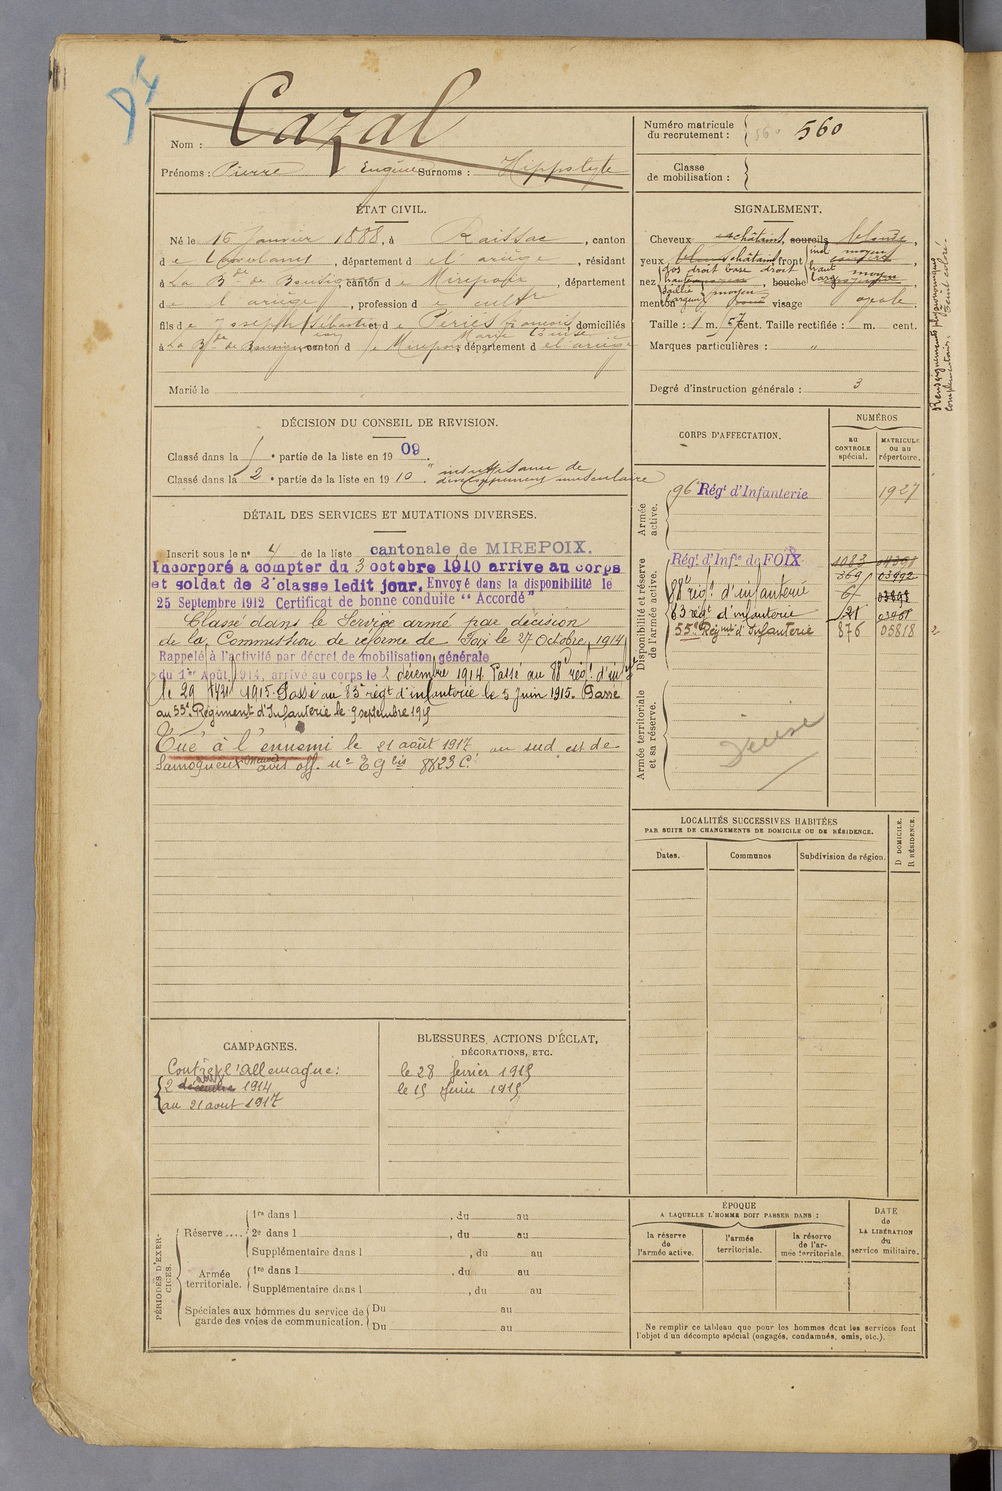 Cazal
Nom :
Prénoms : Pierre Eugène Surnoms : Hippolyte
Numéro matricule
du recrutement : 560 560
Classe
de mobilisation :
ÉTAT CIVIL.
Né le 15 Janvier 1888, à Raissac, canton
de Lavelanet, département de l'ariège, résidant
à La Bde de canton de Mirepoix, département
de l'ariège, profession de cultr
fils de Joseph Sébastien et de Périés françoise domiciliés
Marie Louise
à La Bde de canton de Mirepoix département de l'ariège
Marié le
SIGNALEMENT.
Cheveux châtains, sourcils blonds,
yeux châtains front
ind moyen
nez dos droit base droit haut moyen, bouche
saillie moyen larg
menton largeur visage ovale.
Taille : 1 m. 57 cent. Taille rectifiée : m. cent.
Marques particulières : "
Degré d'instruction générale : 3
Renseignements physionomiques
complémentaires.
DÉCISION DU CONSEIL DE REVISION.
Classé dans la 1 e partie de la liste en 19 09.
Classé dans la 2 e partie de la liste en 19 10. " insuffisance de
développement musculaire
DÉTAIL DES SERVICES ET MUTATIONS DIVERSES.
Inscrit sous le no 4 de la liste cantonale de MIREPOIX.
Incorporé a compter du 3 octobre 1910 arrive au corps
et soldat de 2e classe ledit jour. Envoyé dans la disponibilité le
25 Septembre 1912 Certificat de bonne conduite “ Accordé”
Classé dans le Service armé par décision
de la Commission de réforme de Foix le 27 Octobre 1914
Rappelé à l'activité par décret de mobilisation générale
du 1er Août 1914, arrivé au corps le 2 décembre 1914 Passé au 88e régt d'infie
le 29 1915. Passé au 83e régt d'infanterie le 5 juin 1915. Passé
au 55e Régiment d'Infanterie le 9 septembre 1915
Tué à l'ennemi le 21 août 1917 au sud est de
Samogneux (Meuse) avis off. no 8823 C.
CORPS D'AFFECTATION.
NUMÉROS
au
CONTROLE
spécial.
MATRICULE
OU au
répertoire.
Armée
active.
96e Régt d'Infanterie 1927
Disponibilité et réserve
de l'armée active.
Régt d'Infie de FOIX 1083 04398
3691 03992
88e régt d'infanterie
83 régt d'infanterie 121
55e Régimt d'Infanterie 876 05818
Armée territoriale
et sa réserve.
LOCALITÉS SUCCESSIVES HABITÉES
PAR SUITE DE CHANGEMENTS DE DOMICILE OU DE RÉSIDENCE.
Dates. Communes Subdivision de région.
D DOMICILE.
R RÉSIDENCE.
CAMPAGNES.
Contre l'Allemagne :
2 décembre 1914
au 21 aout 1917
BLESSURES, ACTIONS D'ÉCLAT,
DÉCORATIONS, ETC.
le 28 février 1915
le 15 1915
PÉRIODES D'EXER-
CICES.
Réserve ....
1re dans l , du au
2e dans l , du au
Supplémentaire dans l , du au
Armée
territoriale.
1re dans l , du au
Supplémentaire dans l , du au
Spéciales aux hommes du service de
garde des voies de communication.
Du au
Du au
ÉPOQUE
A LAQUELLE L'HOMME DOIT PASSER DANS :
la réserve
de
l'armée active.
l'armée
territoriale.
la réserve
de l'ar-
mée territoriale.
DATE
de
LA LIBÉRATION
du
service militaire.
Ne remplir ce tableau que pour les hommes dont les services font
l'objet d'un décompte spécial (engagés, condamnés, omis, etc.).